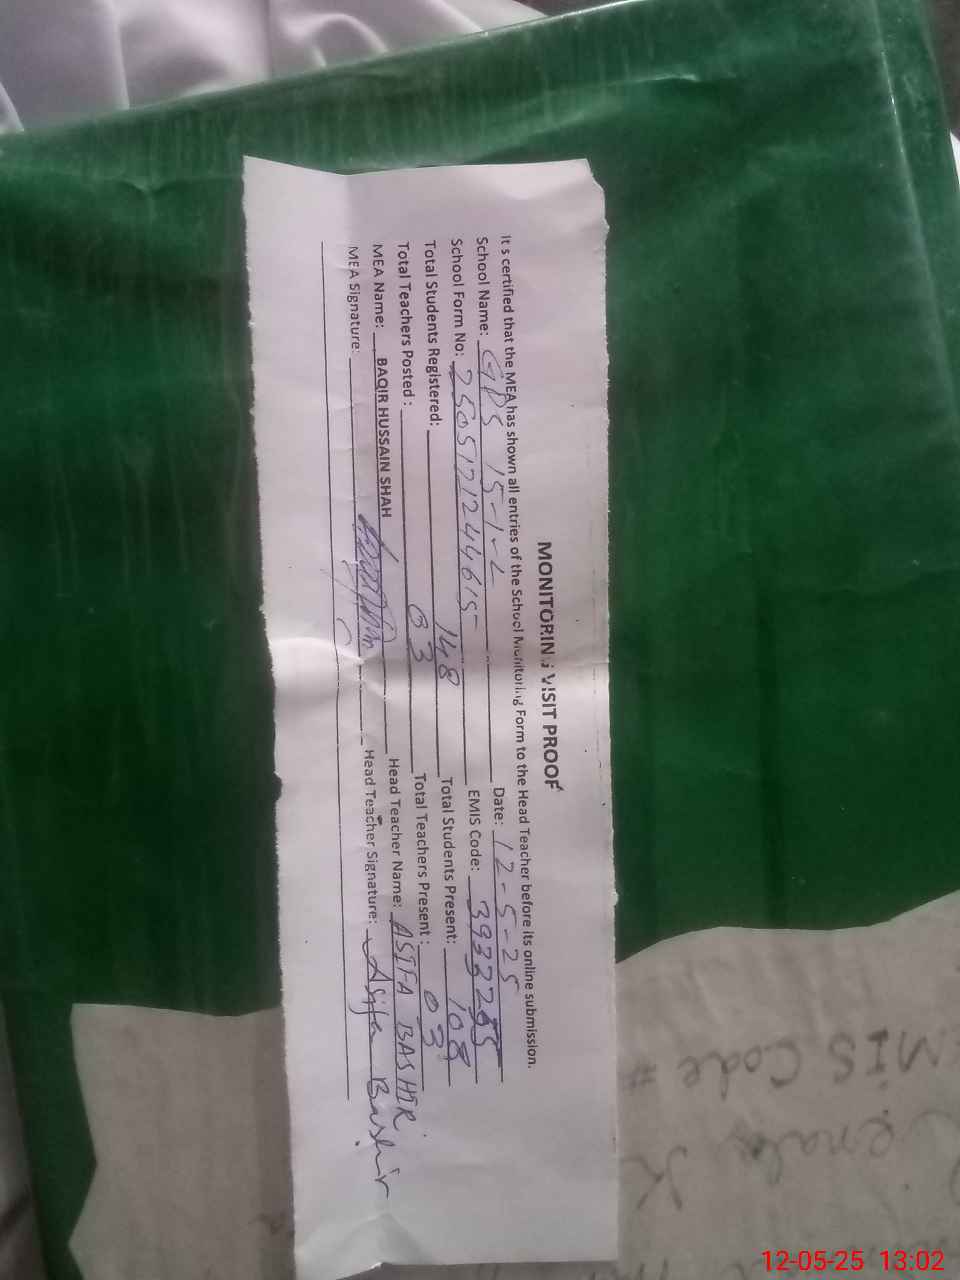 MONITORING VISIT PROOF
It s certified that the MEA has shown all entries of the School Monitoring Form to the Head Teacher before its online submission.
School Name: GPS 15-1-L Date: 12-5-25
School Form No: 2505171244615 EMIS Code: 39332285
Total Students Registered: 148 Total Students Present: 108
Total Teachers Posted : 03 Total Teachers Present : 03
MEA Name: BAQIR HUSSAIN SHAH Head Teacher Name: ASIFA BASHIR
MEA Signature: Head Teacher Signature: Asifa Bashir
MIS Code #
12-05-25 13:02